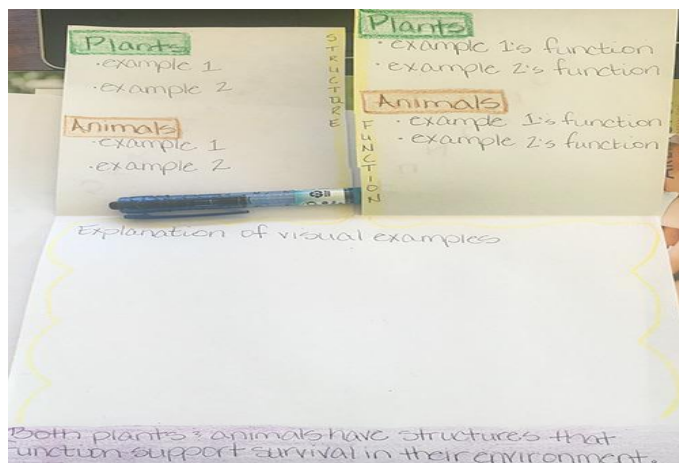 Plants
·example 1
·example 2
Animals
·example 1
·example 2
STRUCTURE
Plants
·example 1's function
·example 2's function
Animals
·example 1's function
·example 2's function
FUNCTION
Explanation of visual examples
Both plants & animals have structures that
function support survival in their environment.